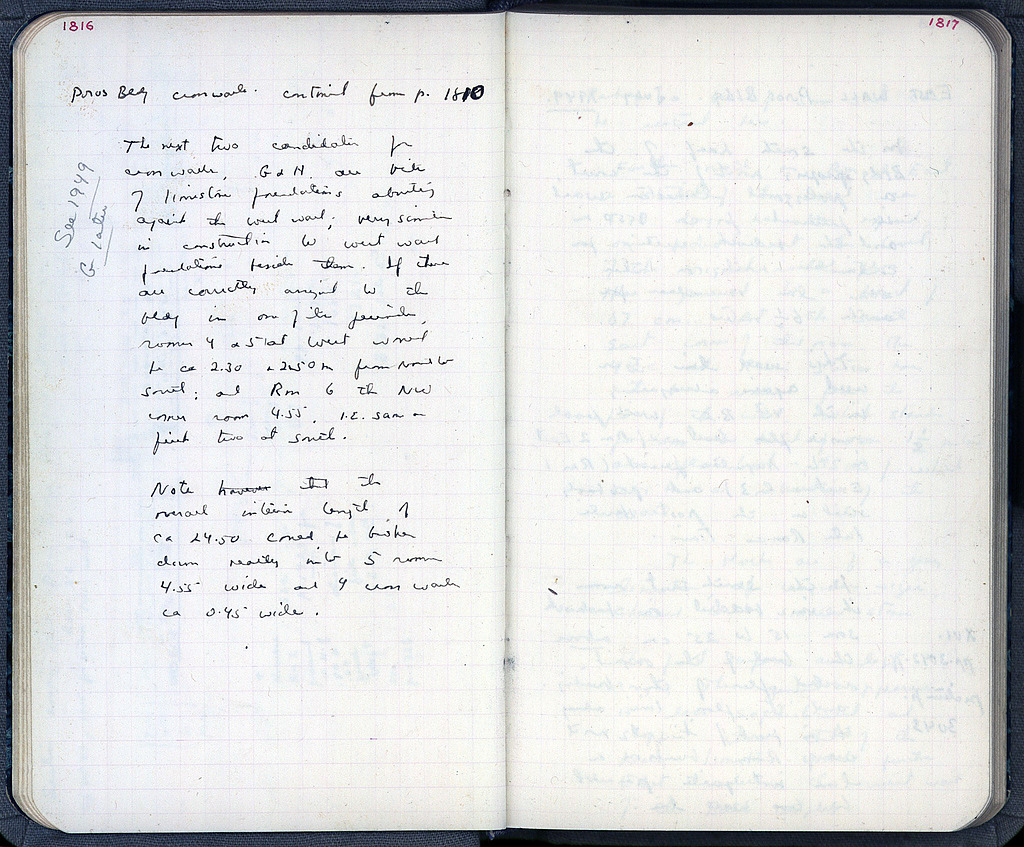 1816
1817
Poros Bldg crosswalls. continued from p. 1810
See 1949
& later
The next two candidates for
crosswalls, G & H. are bits
of limestone foundations abutting
against the west wall; very similar
in construction to west wall
foundations beside them. If these
are correctly assigned to the
bldg in one of its periods,
rooms 4 & 5 at west would
be ca 2.30 & 2.50 m from north to
south; and Rm 6 the NW
corner room 4.55, i.e. same as
first two at south.
Note however that the
overall interior length of
ca 24.50 could be broken
down neatly into 5 rooms
4.55 wide and 4 cross walls
ca 0.45 wide.